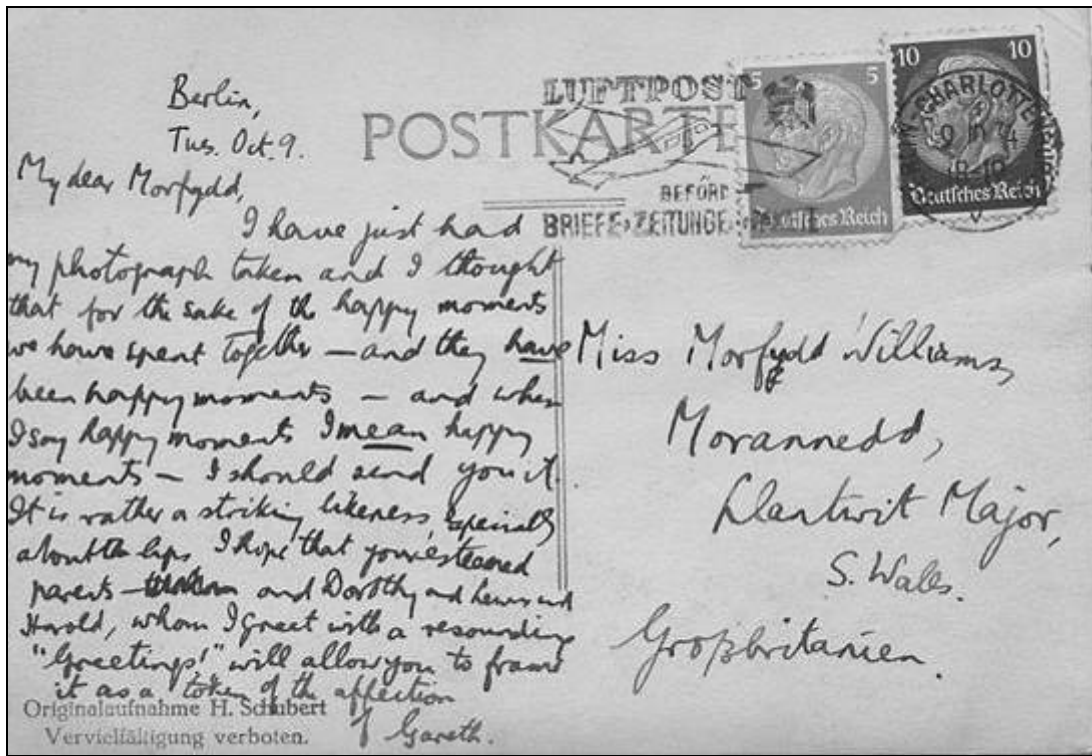 Berlin,
Tues. Oct. 9.
My dear Morfydd,
I have just had
my photograph taken and I thought
that for the sake of the happy moments
we have spent together — and they have
been happy moments — and when
I say happy moments I mean happy
moments — I should send you it.
It is rather a striking likeness, especially
about the lips. I hope that your esteemed
parents — and Dorothy and Lewis and
Harold, whom I greet with a resounding
"Greetings!" will allow you to frame
it as a token of the affection
of Gareth.
Originalaufnahme H. Schubert
Vervielfältigung verboten.
POSTKARTE
LUFTPOST
BEFÖRD
BRIEFE·ZEITUNGE
5 5
Deutsches Reich
10 10
Deutsches Reich
CHARLOTTE
Miss Morfydd Williams,
Morannedd,
Llantwit Major,
S. Wales.
Großbritanien.